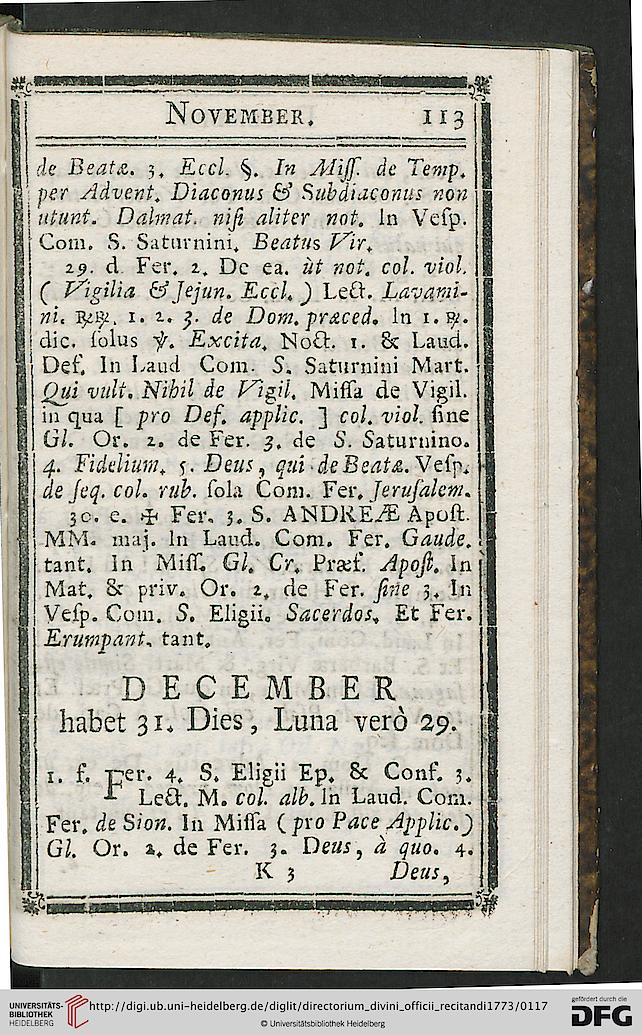 NOVEMBER. 113
de Beatæ. 3. Eccl. §. In Miſſ. de Temp.
per Advent. Diaconus & Subdiaconus non
utunt. Dalmat. niſi aliter not. In Veſp.
Com. S. Saturnini. Beatus Vir.
29. d Fer. 2. De ea. ùt not. col. viol.
( Vigilia & Jejun. Eccl. ) Lect. Lavami-
ni. ℟℟. 1. 2. 3. de Dom. præced. In 1. ℟.
dic. ſolus ℣. Excita. Noct. 1. & Laud.
Def. In Laud Com. S. Saturnini Mart.
Qui vult. Nihil de Vigil. Miſſa de Vigil.
in qua [ pro Def. applic. ] col. viol. ſine
Gl. Or. 2. de Fer. 3. de S. Saturnino.
4. Fidelium. 5. Deus, qui de Beatæ. Veſp.
de ſeq. col. rub. ſola Com. Fer. Jeruſalem.
30. e. ✠ Fer. 3. S. ANDREÆ Apoſt.
MM. maj. In Laud. Com. Fer. Gaude.
tant. In Miſſ. Gl. Cr. Præf. Apoſt. In
Mat. & priv. Or. 2. de Fer. ſine 3. In
Veſp. Com. S. Eligii. Sacerdos. Et Fer.
Erumpant. tant.
DECEMBER
habet 31. Dies, Luna verò 29.
1. f. Fer. 4. S. Eligii Ep. & Conf. 3.
Lect. M. col. alb. In Laud. Com.
Fer. de Sion. In Miſſa ( pro Pace Applic. )
Gl. Or. 2. de Fer. 3. Deus, à quo. 4.
K 3 Deus,
UNIVERSITÄTS-
BIBLIOTHEK
HEIDELBERG
http://digi.ub.uni-heidelberg.de/diglit/directorium_divini_officii_recitandi1773/0117
© Universitätsbibliothek Heidelberg
gefördert durch die
DFG